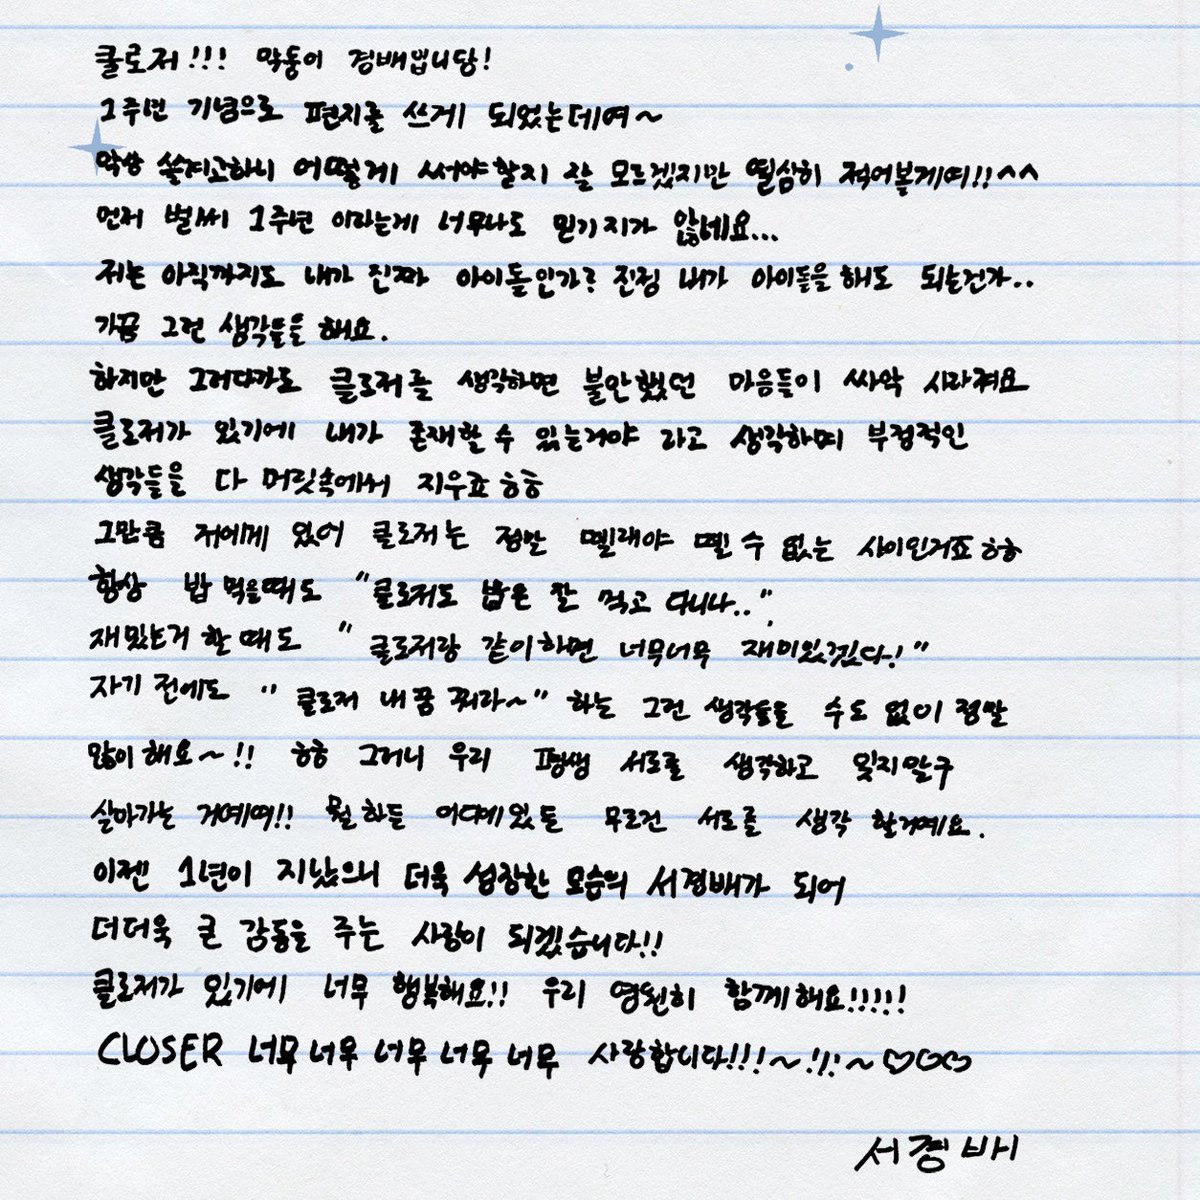 클로저!!! 막둥이 경배입니당!
1주년 기념으로 편지를 쓰게 되었는데여~
막상 쓸려고하니 어떻게 써야할지 잘 모르겠지만 열심히 적어볼게여!!^^
먼저 벌써 1주년 이라는게 너무나도 믿기지가 않네요...
저는 아직까지도 내가 진짜 아이돌인가? 진정 내가 아이돌을 해도 되는건가..
가끔 그런 생각들을 해요.
하지만 그러다가도 클로저를 생각하면 불안했던 마음들이 싸악 사라져요
클로저가 있기에 내가 존재할 수 있는거야 라고 생각하며 부정적인
생각들을 다 머릿속에서 지우죠ㅎㅎ
그만큼 저에게 있어 클로저는 정말 뗄래야 뗄 수 없는 사이인거죠ㅎㅎ
항상 밥 먹을때도 "클로저도 밥은 잘 먹고 다니나..",
재밌는거 할때도 "클로저랑 같이하면 너무너무 재미있겠다!"
자기 전에도 "클로저 내 꿈 꿔라~" 하는 그런 생각들을 수도 없이 정말
많이해요~!! ㅎㅎ 그러니 우리 평생 서로를 생각하고 잊지말구
살아가는 거예여!! 뭘 하든 어디에있든 무조건 서로를 생각 할거예요.
이젠 1년이 지났으니 더욱 성장한 모습의 서경배가 되어
더더욱 큰 감동을 주는 사람이 되겠습니다!!
클로저가 있기에 너무 행복해요!! 우리 영원히 함께해요!!!!!
CLOSER 너무 너무 너무 너무 너무 사랑합니다!!!~!!!~♡♡♡
서경배